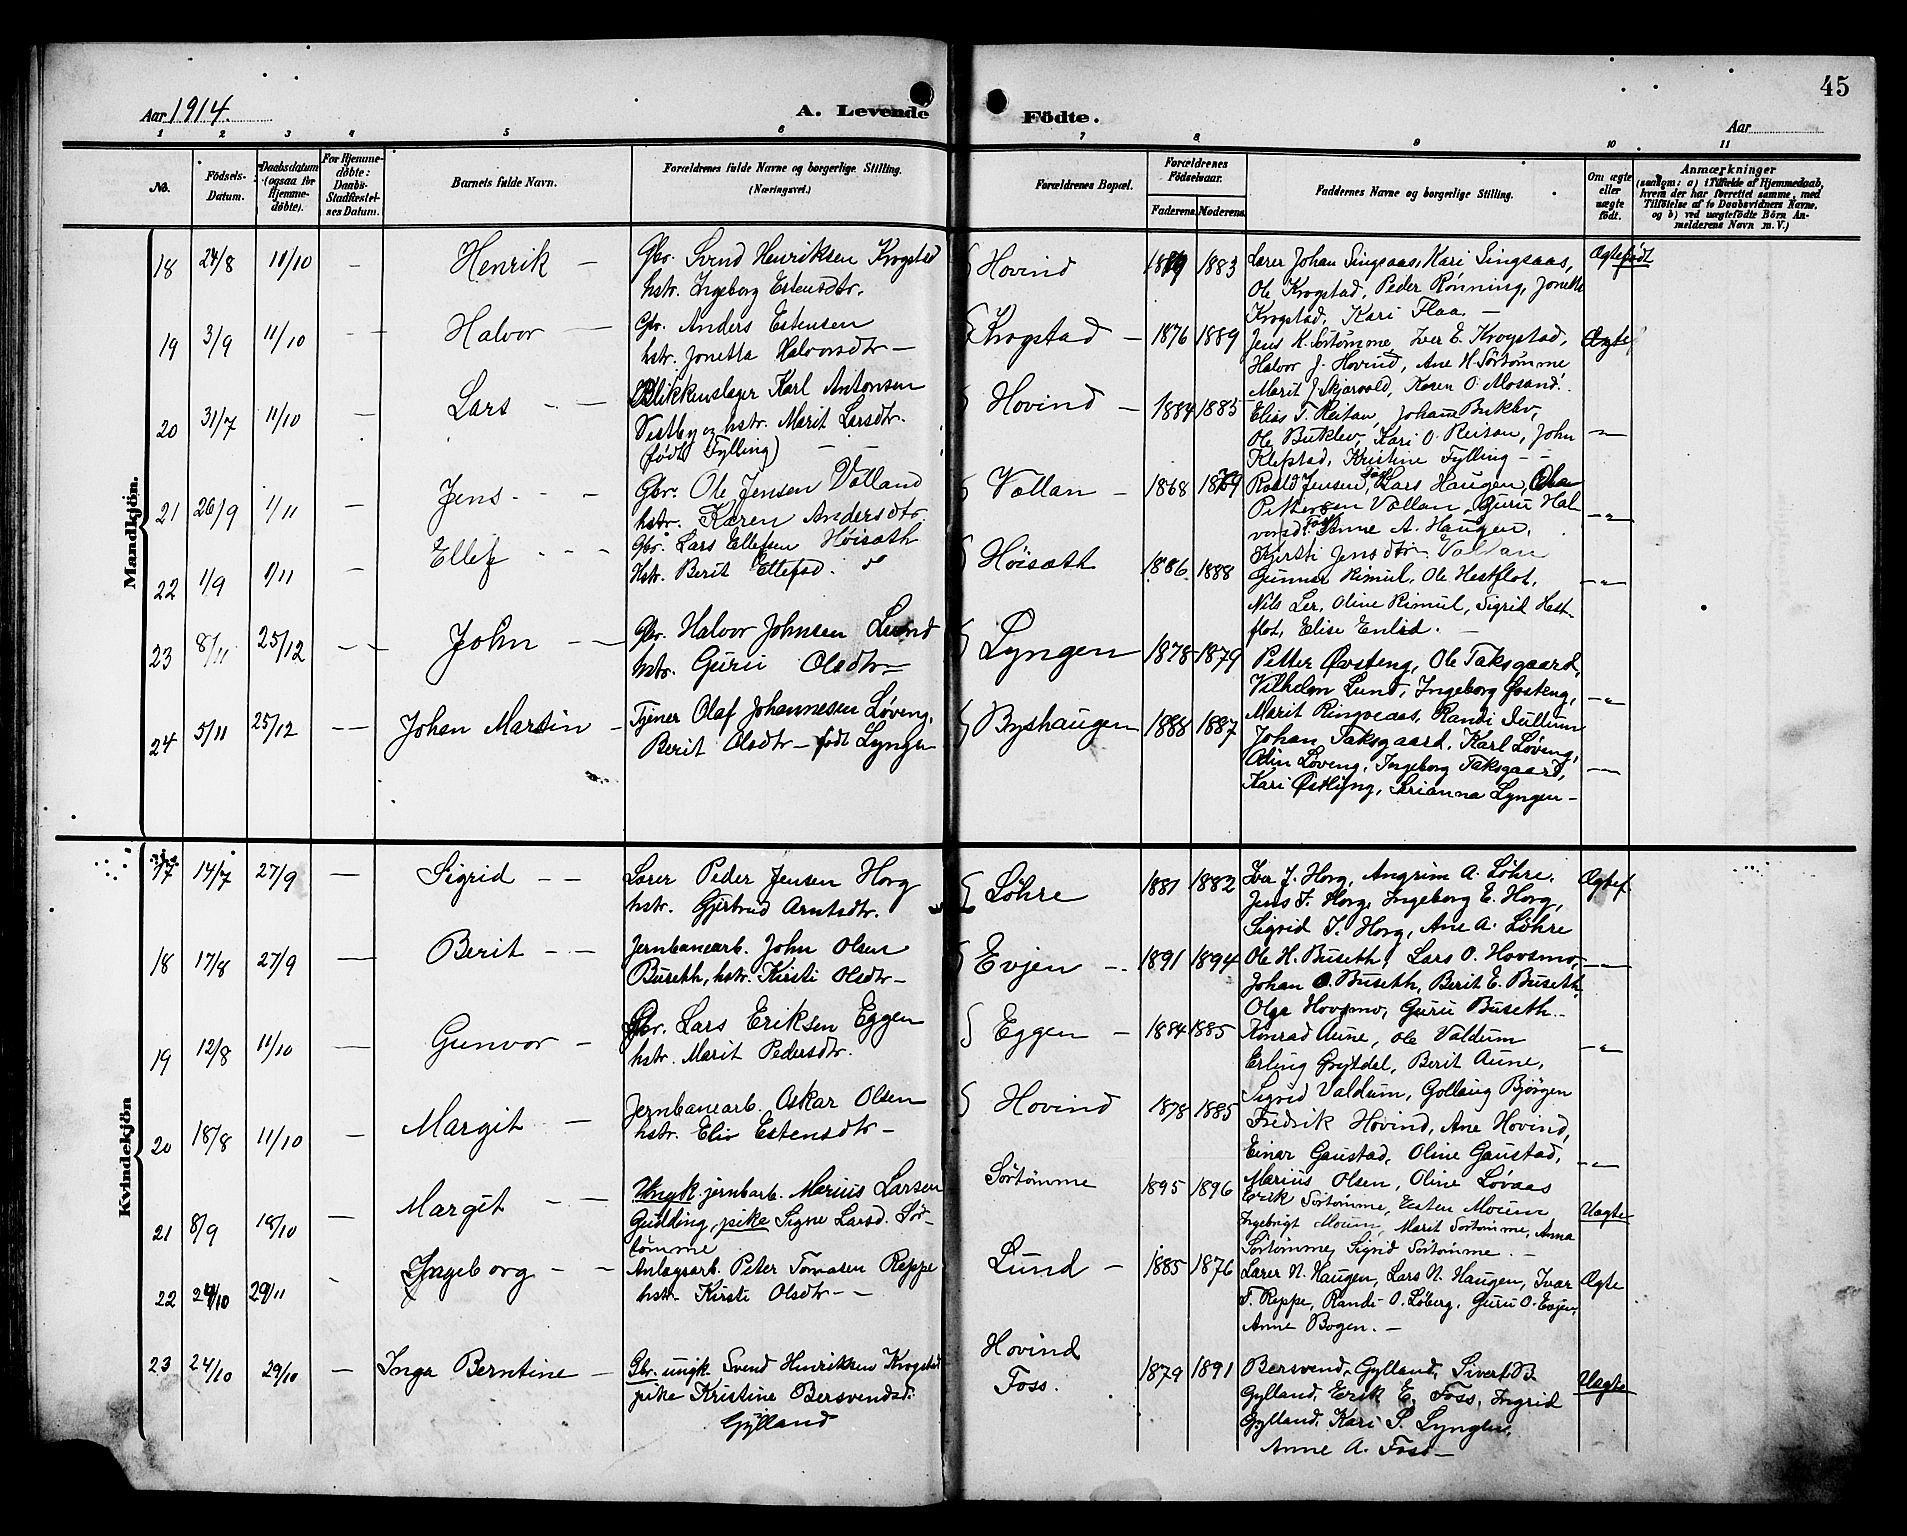 45
Aar 1914.
A. Levende Fødte.
Aar
1 2 3 4 5 6 7 8 9 10 11
No.
Fødsels-Datum.
Daabsdatum (ogsaa for Hjemme-døbte).
For Hjemme-døbte: Daabs-Stadfæstel-ses Datum.
Barnets fulde Navn.
Forældrenes fulde Navne og borgerlige Stilling.
(Næringsvei.)
Forældrenes Bopæl.
Forældrenes Fødselsaar.
Faderens. Moderens.
Faddernes Navne og borgerlige Stilling.
Om ægte eller uægte født.
Anmærkninger
(saasom: a) i Tilfælde af Hjemmedaab,
hvem der har forrettet samme, med
Tilføielse af to Daabsvidners Navne,
og b) ved uægtefødte Børn An-
melderens Navn m. V.)
Mandkjön.
18 24/8 11/10 – Henrik – Gbr. Svend Henriksen Krogstad
hstr. Ingeborg Estensdtr.
Hovind 1883
Lærer Johan Singsaas, Kari Singsaas,
Ole Krogstad, Peder Rønning, Jonetta
Krogstad, Kari Flaa. –
Ægtefødt
19 3/9 11/10 – Halvor – Gbr. Anders Estensen
hstr. Jonetta Halvorsdtr –
Krogstad – 1876 1889
Jens H. Sørtømme, Iver E. Krogstad,
Halvor J. Hovind, Ane H. Sørtømme
Marit J. Skjærvold, Karen O. Mosand.
Ægte
20 31/7 11/10 – Lars – Blikkenslager Karl Antonsen
Vestby og hstr. Marit Larsdtr.
(født Fylling)
Hovind – 1884 1885
Elias T. Reitan, Johan Buklev,
Ole Buklev, Kari O. Reitan, John
Klefstad, Kristine Fylling – –
–"–
21 26/9 1/11 – Jens – Gbr. Ole Jensen Valland
hstr. Karen Andersdtr.
Vollan – 1868
Roald Jensen, Lars Haugen,
Pettersen Vollan, Guru Hal-
vorsd. Anne A. Haugen.
Kjersti Jensdtr. Valdan
–"–
22 1/9 1/11 – Ellef – Gbr. Lars Ellefsen Høisæth
Hstr. Berit Ellefsd.
Høisæth – 1886 1888
Gunnar Rimul, Ole Hestflot,
Nils Ler, Oline Rimul, Sigrid Hest-
flot, Elise Enlid. –
–"–
23 8/11 25/12 – John – Gbr. Halvor Johnsen Lund
hstr. Guru Olsdtr –
Lyngen 1878 1879
Petter Øvsteng, Ole Taksgaard,
Vilhelm Lund, Ingeborg Øvsteng,
Marit Ringveaas, Randi Jullum
–"–
24 5/11 25/12 – Johan Martin – Tjener Olaf Johannesen Løveng,
Berit Olsdtr – født Lyngen
Byshaugen 1888 1887
Johan Taksgaard, Karl Løveng,
Odin Løveng, Ingeborg Taksgaard,
Kari Østlyng, Lyngen –
–"–
Kvindekjön
17 14/7 27/9 – Sigrid – – Lærer Peder Jensen Horg
hstr. Gjertrud Arntsdtr.
Løhre 1881 1882
Iver J. Horg, Angrim A. Løhre.
Jens F. Horg, Ingeborg E. Horg,
Sigrid J. Horg, Ane A. Løhre
Ægtef.
18 17/8 27/9 – Berit – – Jernbanearb. John Olsen
Buseth, hstr. Kirsti Olsdtr –
Evjen – 1891 1894
Ole H. Buseth, Lars O. Hovsmo,
Johan O. Buseth, Berit E. Buseth
Olga Hovsmo, Guru Buseth.
–"–
19 12/8 11/10 – Gunvor – Gbr. Lars Eriksen Eggen
hstr. Marit Pedersdtr.
Eggen – 1884 1885
Konrad Aune, Ole Valdum
Erling Grytdal, Berit Aune,
Sigrid Valdum, Gollaug Bjørgen
–"–
20 18/8 11/10 – Margit – Jernbanearb. Oskar Olsen
hstr. Eliv Estensdtr –
Hovind 1878 1885
Fredrik Hovind, Ane Hovind,
Einar Gaustad, Oline Gaustad,
Marius Olsen, Oline Løvaas
–"–
21 8/9 18/10 – Margit – – Ungk. jernbarb. Marius Larsen
Gudding, pike Signe Larsd. Sør-
tømme
Sørtømme 1895 1896
Erik Sørtømme, Esten Moum
Ingebrigt Moum, Marit Sørtømme, Anna
Sørtømme, Sigrid Sørtømme. –
Uægte
22 24/10 29/11 – Ingeborg – – Anlægsarb. Peter Tomasen Reppe
hstr. Kirsti Olsdtr – –
Lund – 1885 1876
Lærer N. Haugen, Lars N. Haugen, Ivar
T. Reppe, Randi O. Løberg, Guru O. Evjen,
Anne Bogen. –
Ægte
23 24/10 29/10 – Inga Berntine – Gbr. ungk. Svend Henriksen Krogstad
pike Kristine Bersvendsd.
Gylland
Hovind
Foss. 1879 1891
Bersvend Gylland, Sivert B.
Gylland, Erik E. Foss, Ingrid
Gylland, Kari S. Lyngen,
Anne A. Foss –
Uægte